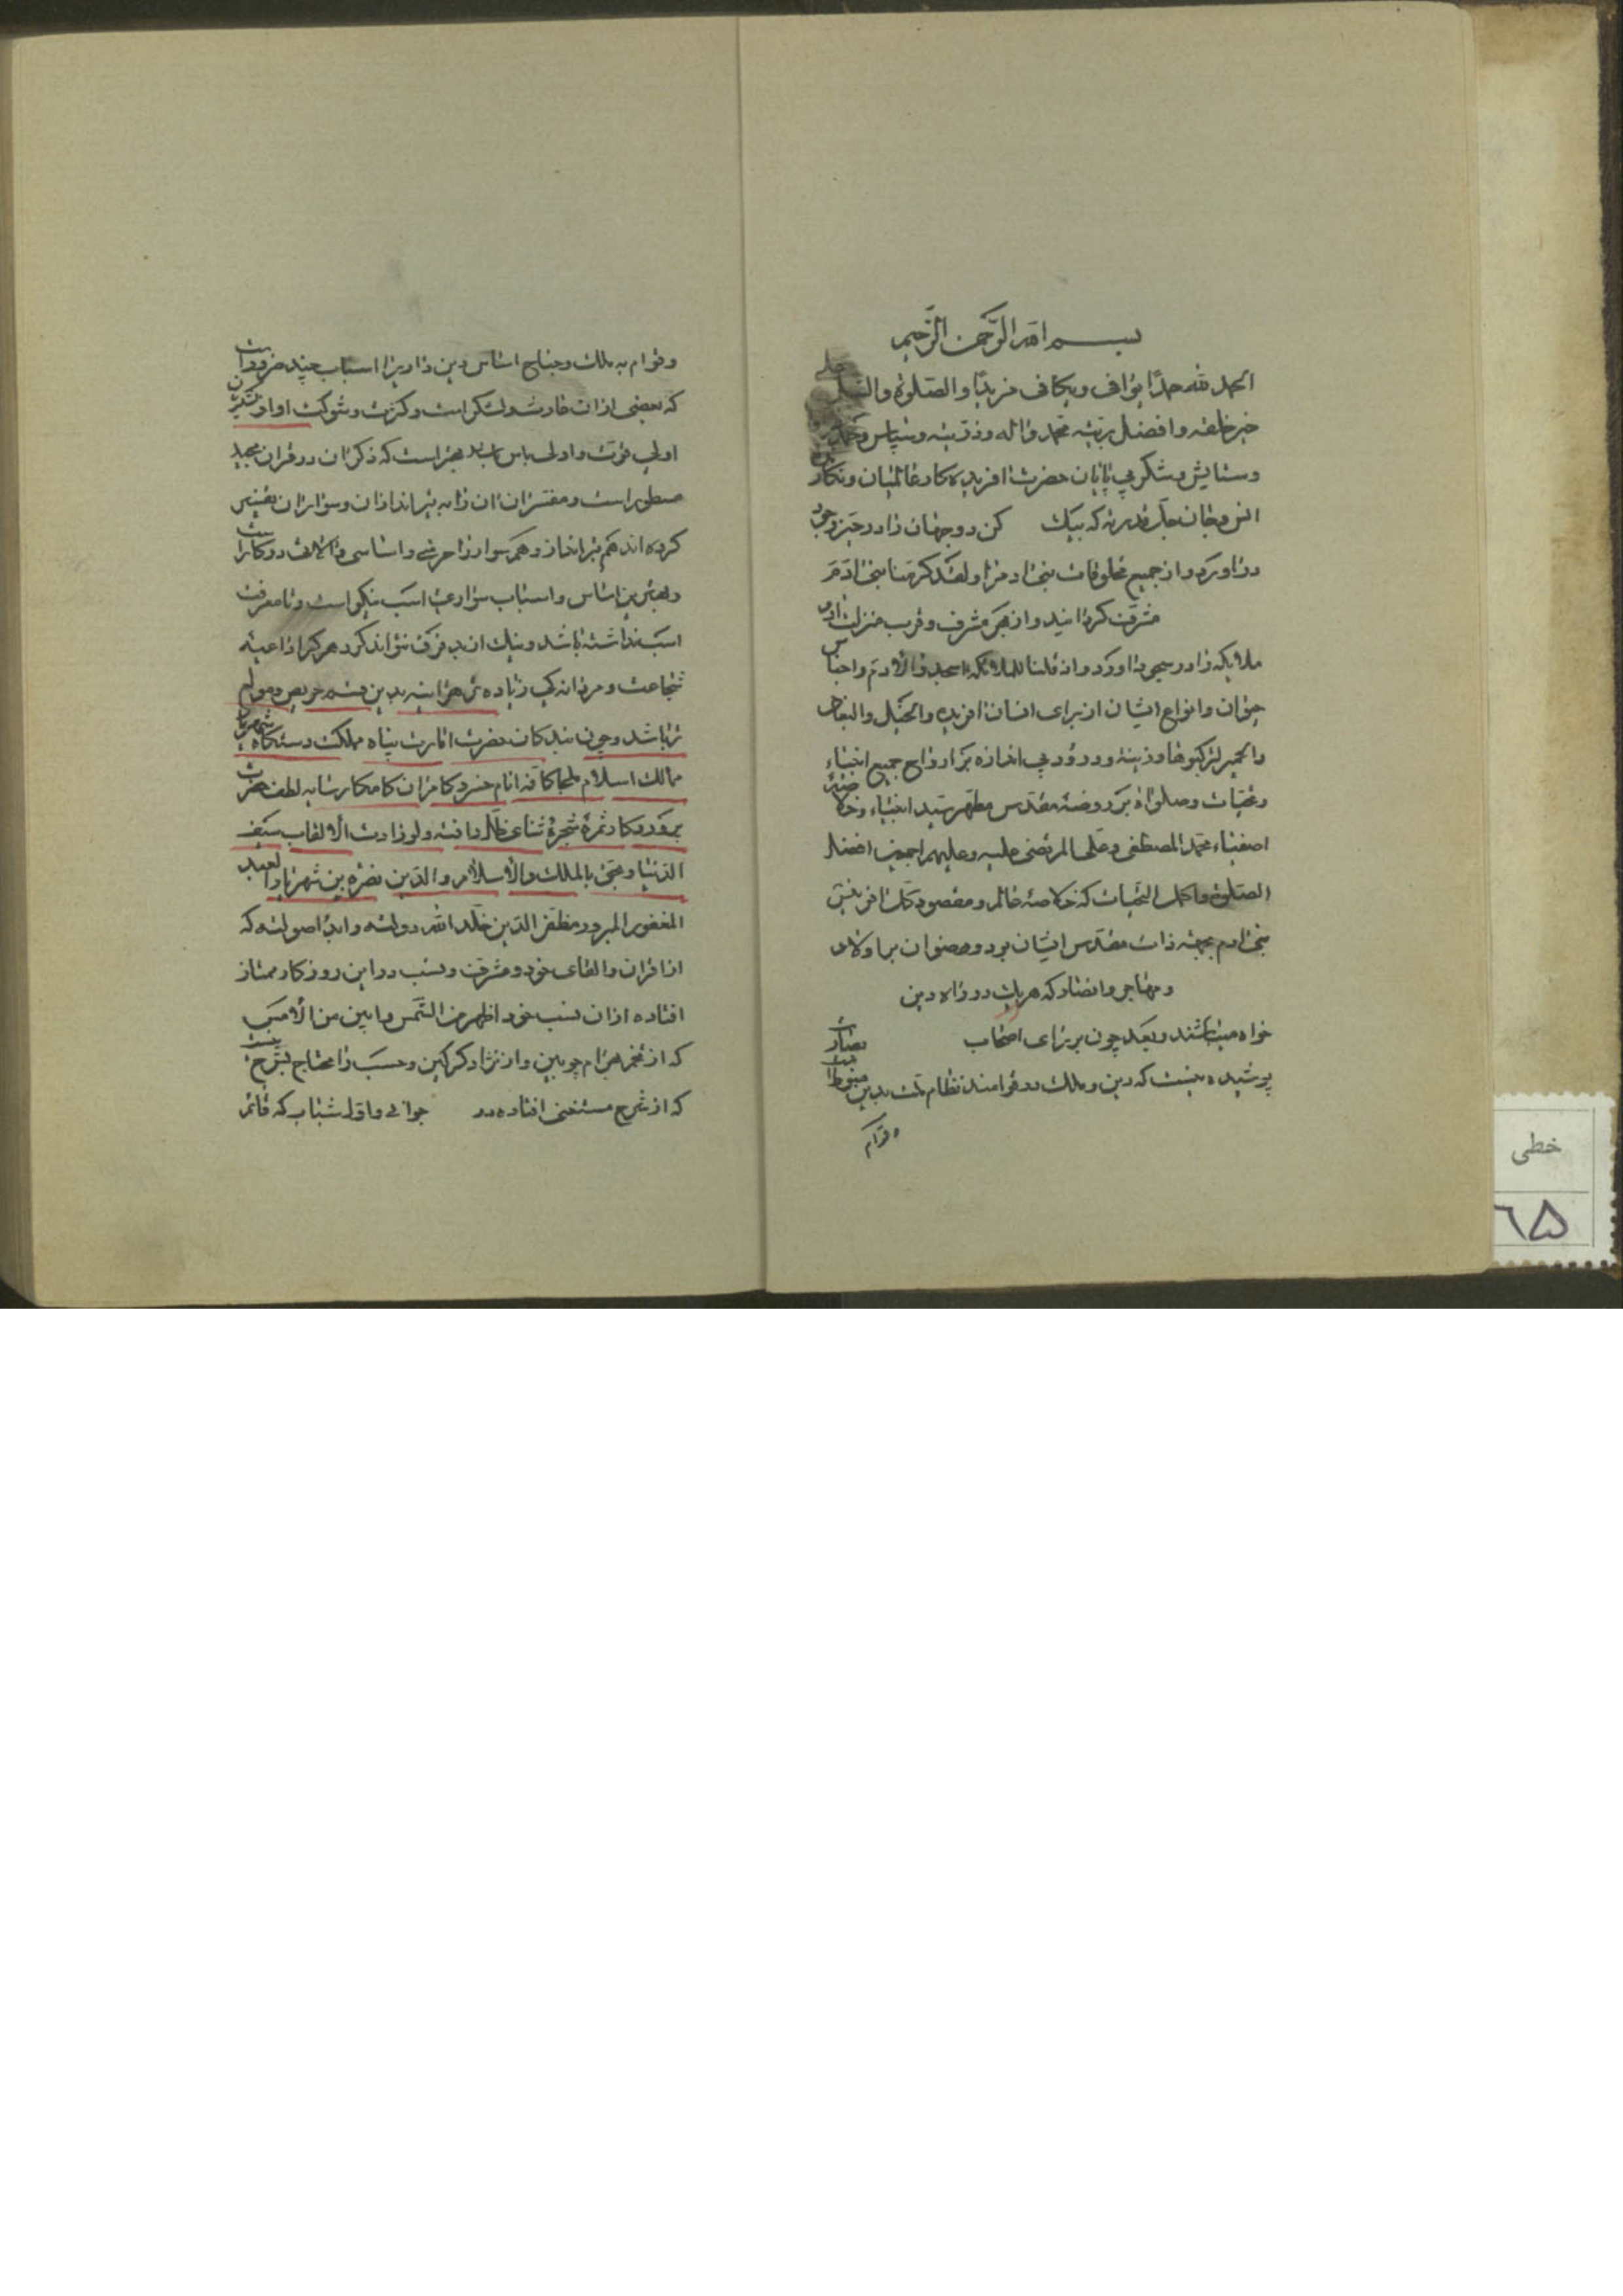 بسم الله الرَّحمن الرَّحیم
الحمد لله حمدًا یوافی ویکافی مزیدًا والصّلوة والسلم علی
خیر خلقه وافضل بریّته محمد واله وذرّیته وسپاس
وستایش وشکر بی پایان حضرت افریده کار عالمیان ونکارنده
انس وجان جلّ قدرته که بیک کن دو جهان را در حیّز وجود
دراورد واز جمیع مخلوقات بنی ادم را ولقد کرمنا بنی ادَمَ
مشرّف کردانید واز هی مشرف وقرب منزلت
ملایکه را در سجود اورد واذ قلنا للملائکه اسجدوا لادم واجناس
حیوان وانواع ایشان از برای انسان افریده والخیل والبغال
والحمیر لترکبوها وزینة ودرود بی اندازه بر ارواح جمیع انبیاء
وتحیّات وصلواة بر روضهٔ مقدّس مطهر سیّد انبیاء
اصفیاء محمّد المصطفی وعلی المرتضی علیه وعلیهم اجمعین افضل
الصّلوة واکمل التحیات که خلاصهٔ عالم ومقصود کل افرینش
بنی ادم بجهة ذات مقدّس ایشان بود ورضوان بر اولاد
ومهاجر وانصار که هریک در راه دین
خواه میباشند وبعد چون بر رای اصحاب بصارت
پوشیده نیست که دین وملک دو قوامند نظام
وقوام
وقوام به ملک وجناح اساس دین را ویرا اسباب چند ضرورا
که بعضی ازان وکثرت وشوکت
اولی قوّت واولی باس معتبر است که ذکر ان در قران مجید
مسطور است ومفسّران ان را به تیراندازان وسواران تفسیر
کرده اند هم تیرانداز وهم سوار را
وبهترین اساس واسباب سواری اسب نیکو است وتا معرفت
اسب نداشته باشد ونیک از بد فرق نتواند کرد هرکرا داعیه
شجاعت ومردانکی زیاده تر هراینه بدین قسم حریص ومولع
تر باشد وچون بندکان حضرت امارت پناه مملکت دستکاه
ممالک اسلام ملجا کافهٔ انام خسرو کامران کامکار سایه لطف حضرت
پروردکار ثمرهٔ شجرهٔ
الدّنیا بالملک والاسلام والدّین نصره بن شهریار
المغفور المبرور مظفّر الدّین خلّد الله دولته که
از اقران والقای خود ومشرف ونسب در این روزکار ممتاز
افتاده ازان نسب خود اظهر من الشّمس وابین من الامس
که از تخم بهرام چوبین واز نژاد کرکین وحسب را محتاج بشرح نیست
که از شرح مستغنی افتاده در جوانی واوّل شباب که
خطی
۶۵